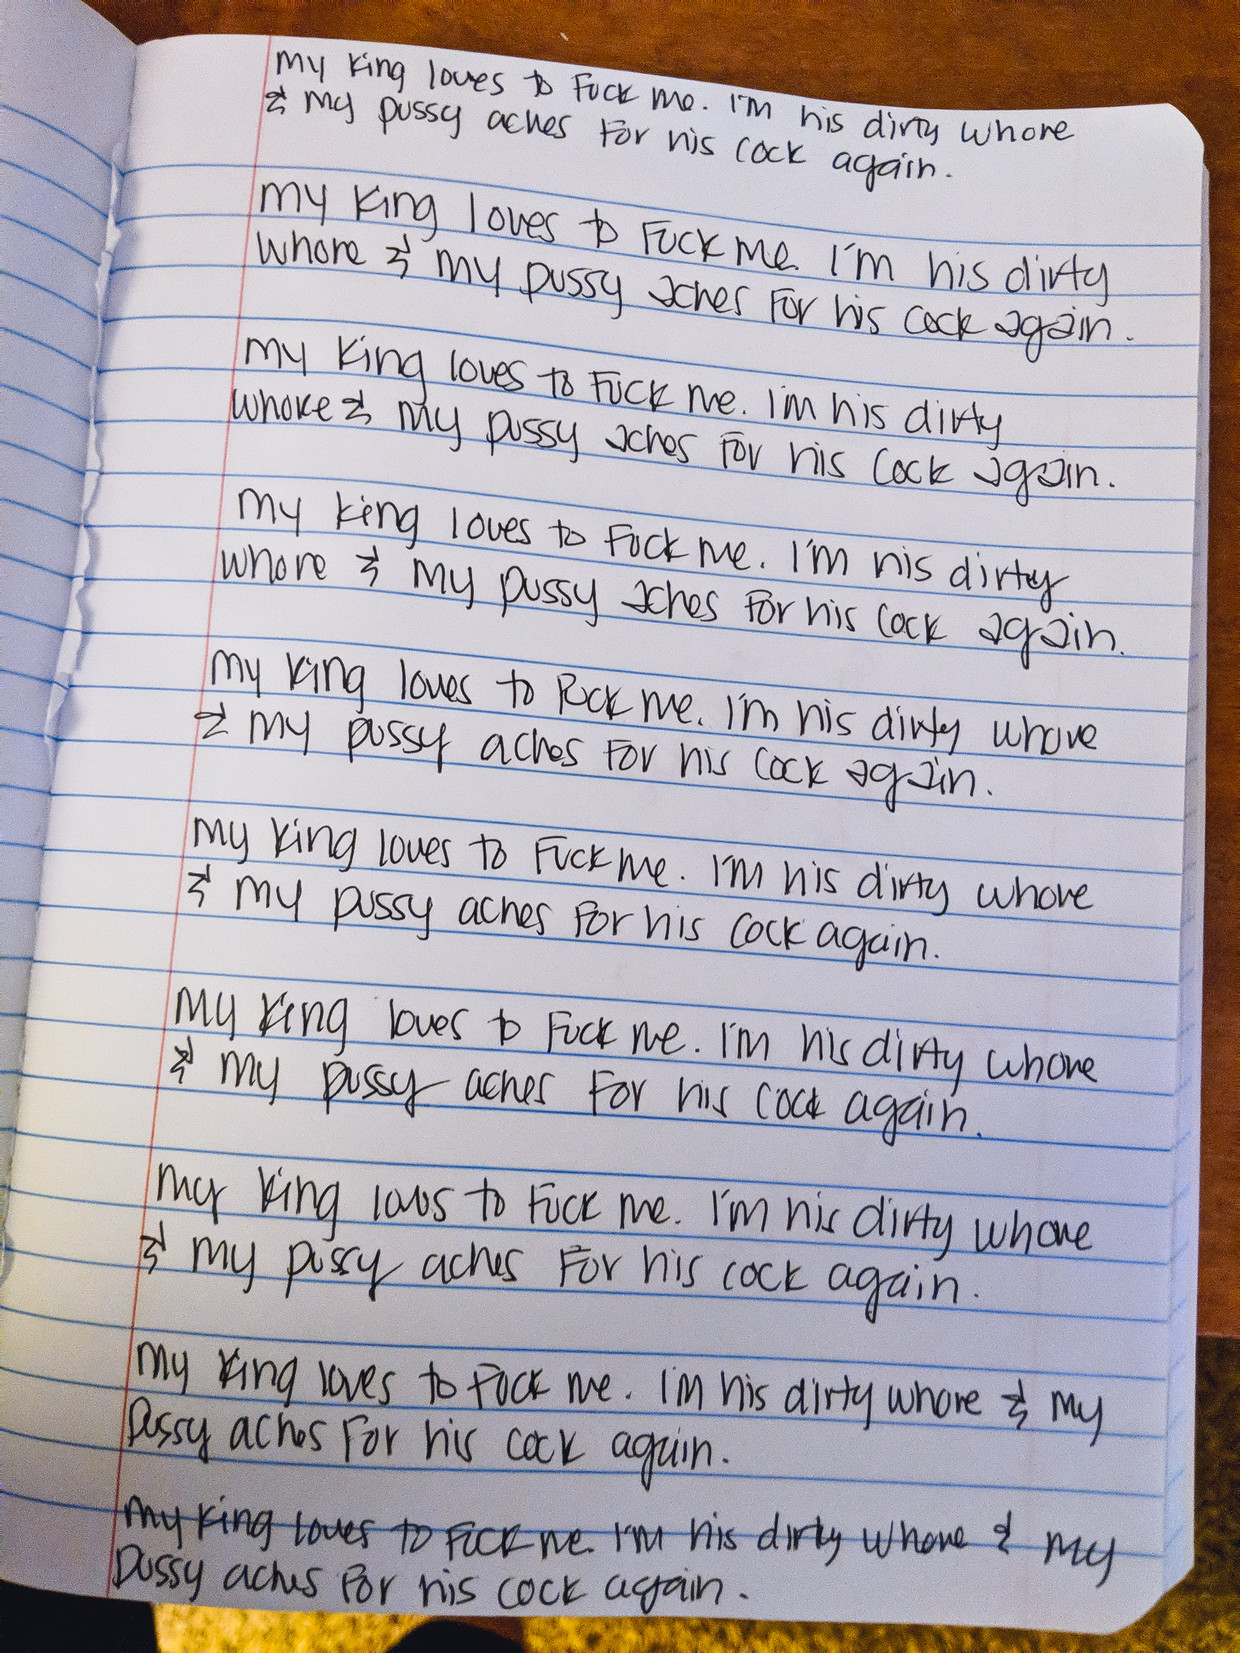 My king loves to Fuck me. I'm his dirty whore
& my pussy aches for his cock again.
My King loves to Fuck me. I'm his dirty
whore & my pussy aches For his cock again.
My King loves to Fuck me. I'm his dirty
whore & my pussy aches For his cock again.
My king loves to Fuck me. I'm his dirty
whore & my pussy aches For his cock again.
My King loves to Fuck me. I'm his dirty whore
& my pussy aches For his cock again.
My King loves to Fuck me. I'm his dirty whore
& my pussy aches For his cock again.
My King loves to Fuck me. I'm his dirty whore
& my pussy aches For his cock again.
My King loves to Fuck me. I'm his dirty whore
& my pussy aches For his cock again.
My King loves to Fuck me. I'm his dirty whore & my
pussy aches For his cock again.
My King loves to Fuck me. I'm his dirty whore & my
pussy aches For his cock again.